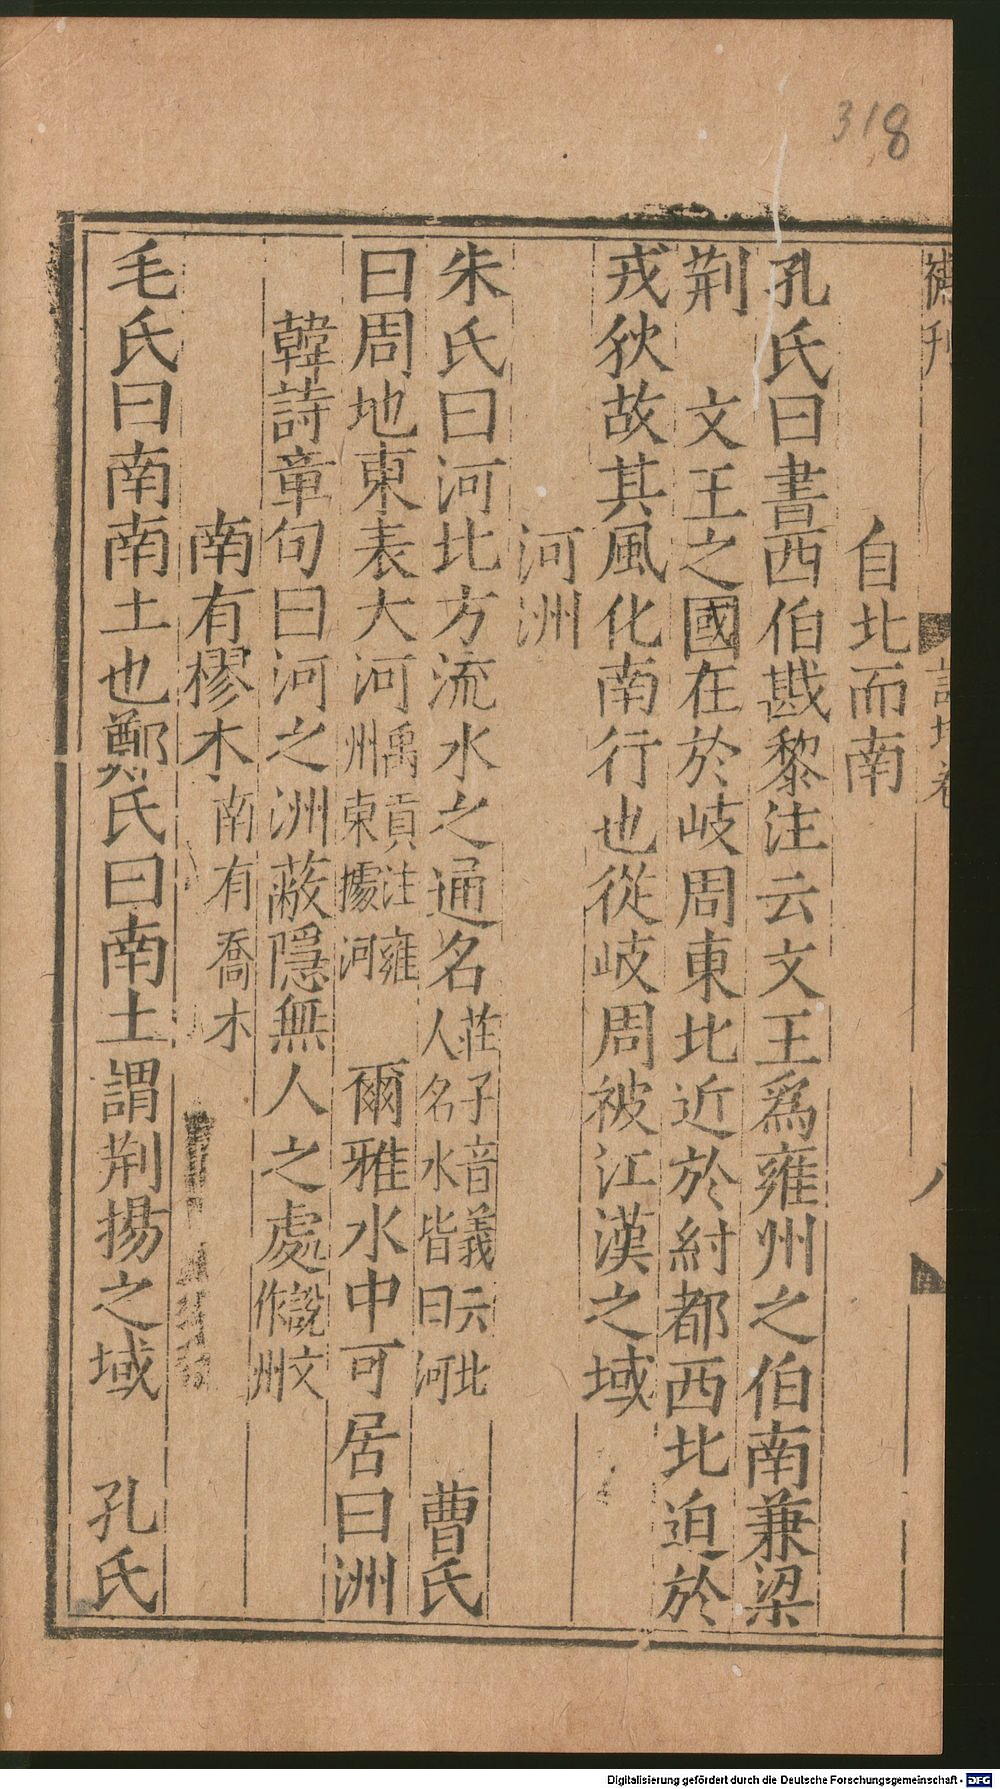 318
自北而南
孔氏曰書西伯戡黎注云文王爲雍州之伯南兼梁
荆　文王之國在於岐周東北近於紂都西北迫於
戎狄故其風化南行也從岐周被江漢之域
河洲
朱氏曰河北方流水之通名莊子音義云北人名水皆曰河　曹氏
曰周地東表大河禹貢注雍州東據河　爾雅水中可居曰洲
韓詩章句曰河之洲蔽隱無人之處說文作州
南有樛木南有喬木
毛氏曰南南土也鄭氏曰南土謂荆揚之域　孔氏
Digitalisierung gefördert durch die Deutsche Forschungsgemeinschaft - DFG